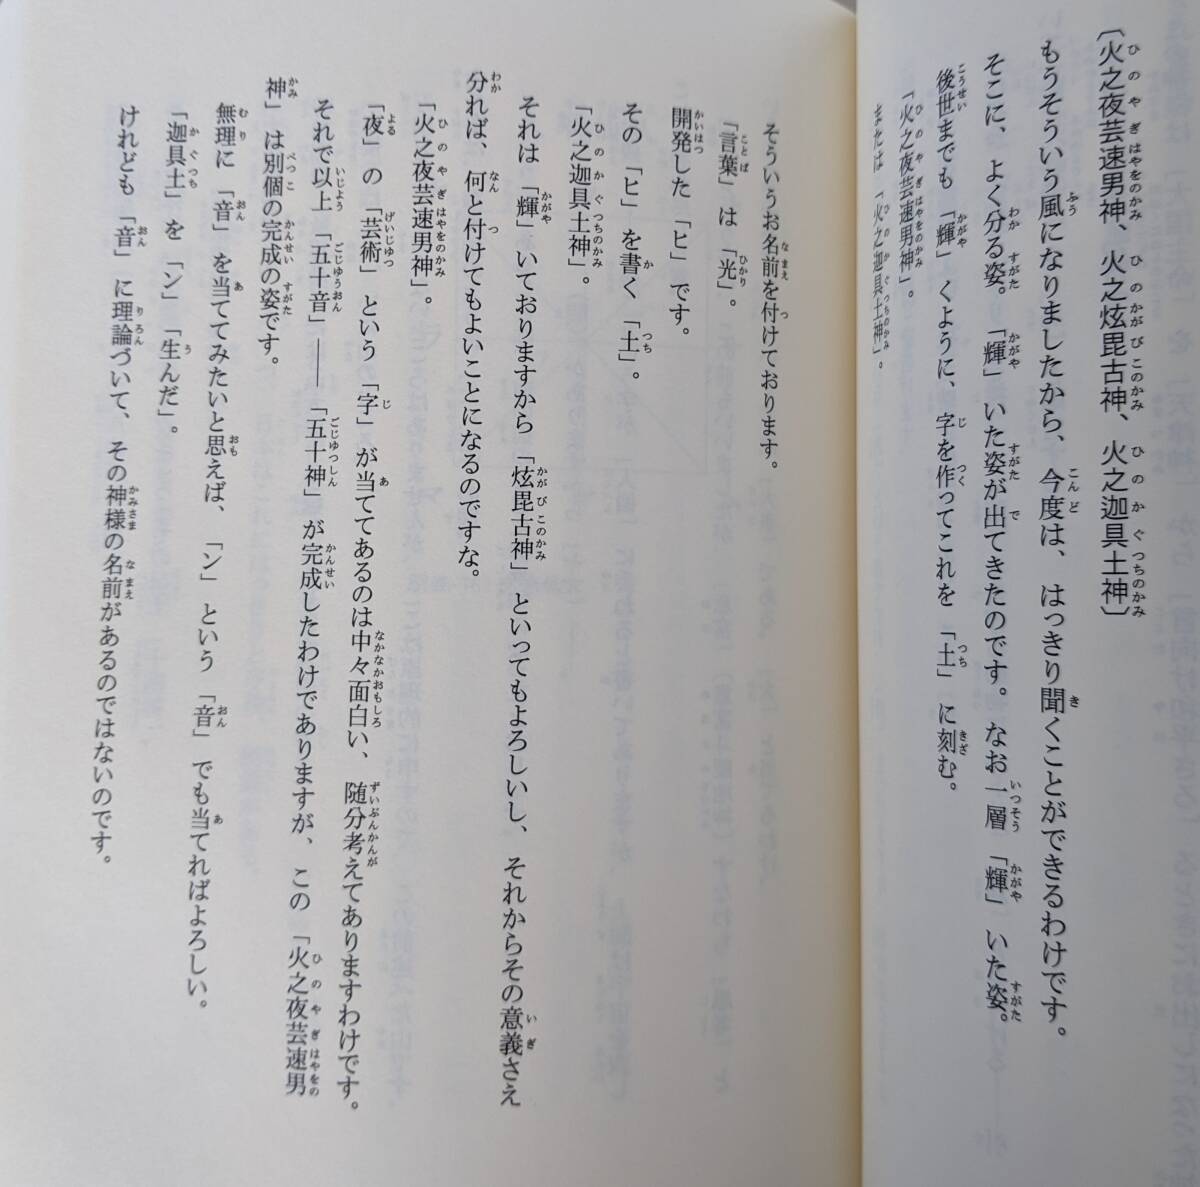 〔火之夜芸速男神、火之炫毘古神、火之迦具土神〕
もうそういう風になりましたから、今度は、はっきり聞くことができるわけです。
そこに、よく分る姿。「輝」いた姿が出てきたのです。なお一層「輝」いた姿。
後世までも「輝」くように、字を作ってこれを「土」に刻む。
「火之夜芸速男神」。
または「火之迦具土神」。
そういうお名前を付けております。
「言葉」は「光」。
開発した「ヒ」です。
その「ヒ」を書く「土」。
「火之迦具土神」。
それは「輝」いておりますから「炫毘古神」といってもよろしいし、それからその意義さえ
分れば、何と付けてもよいことになるのですな。
「火之夜芸速男神」。
「夜」の「芸術」という「字」が当ててあるのは中々面白い、随分考えてありますわけです。
それで以上「五十音」――「五十神」が完成したわけでありますが、この「火之夜芸速男
神」は別個の完成の姿です。
無理に「音」を当ててみたいと思えば、「ン」という「音」でも当てればよろしい。
「迦具土」を「ン」「生んだ」。
けれども「音」に理論づいて、その神様の名前があるのではないのです。